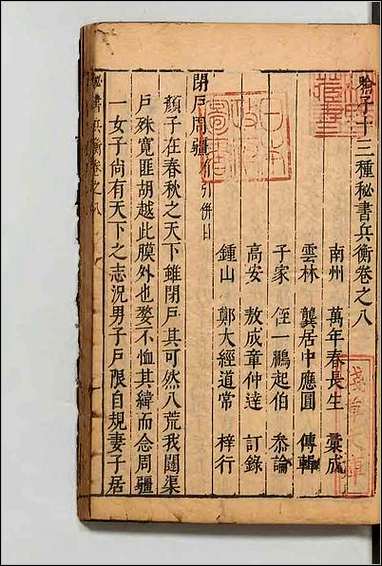 鼎子十三種秘書兵衡卷之八
南州　萬年春長生　彙成
雲林　龔居中應圓　傳輯
子家　侄一鵬起伯　叅論
高安　敖成章仲達　訂錄
鍾山　鄭大經道常　梓行
閉戶周疆
顏子在春秋之天下雖閉戶其可然八荒我闥渠
戶殊寬匪胡越此膜外也嫠不恤其緯而念周疆
一女子尚有天下之志況男子戶限自規妻子居
秘書兵衡卷之八